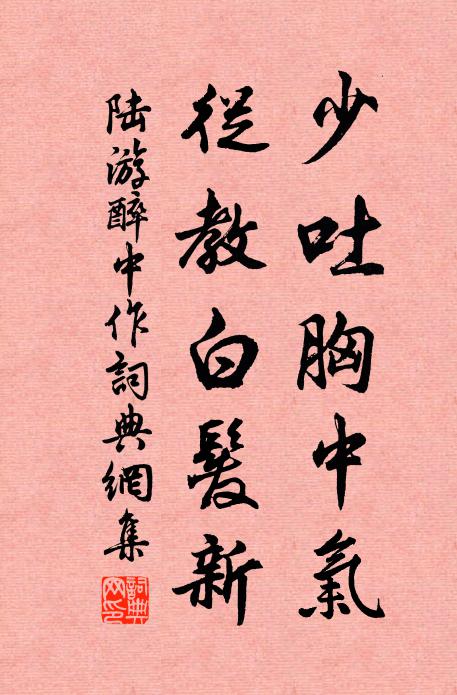 少吐胸中氣
從教白髮新
陸游醉中作詞典網集
詞典网印